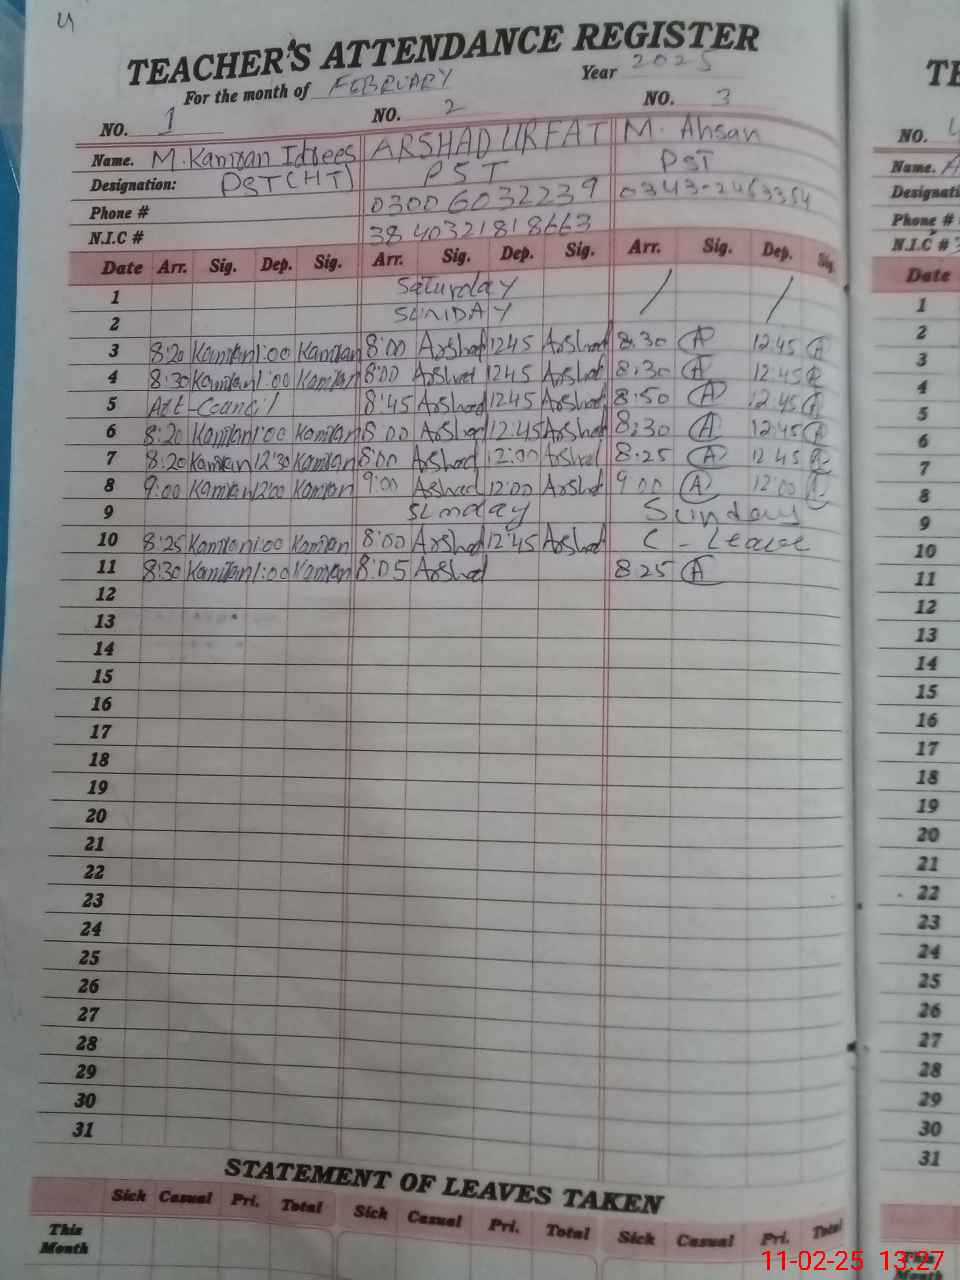 4
TEACHER'S ATTENDANCE REGISTER
For the month of FEBRUARY Year 2025
NO. 1 NO. 2 NO. 3
Name. M. Kamran Idrees ARSHAD URFAT M. Ahsan
Designation: PST (HT) PST PST
Phone # 03006032239 0343-2463354
N.I.C # 3840321818663
Date Arr. Sig. Dep. Sig. Arr. Sig. Dep. Sig. Arr. Sig. Dep. Sig.
1 Saturday / /
2 SUNDAY
3 8:20 Kamran 1:00 Kamran 8:00 Arshad 1245 Arshad 8:30 A 12:45 A
4 8:30 Kamran 1:00 Kamran 8:00 Arshad 1245 Arshad 8:30 A 12:45 A
5 8:45 Arshad 1245 Arshad 8:50 A 12:45 A
6 8:20 Kamran 1:00 Kamran 8:00 Arshad 12:45 Arshad 8:30 A 12:45 A
7 8:20 Kamran 12:30 Kamran 8:00 Arshad 12:00 Arshad 8.25 A 12 45 A
8 9:00 Kamran 12:00 Kamran 9:00 Arshad 12:00 Arshad 9 00 A 12:00
9 Sunday Sunday
10 8:25 Kamran 1:00 Kamran 8:00 Arshad 12:45 Arshad C - Leave
11 8:30 Kamran 1:00 Kamran 8:05 Arshad 8 25 A
12
13
14
15
16
17
18
19
20
21
22
23
24
25
26
27
28
29
30
31
STATEMENT OF LEAVES TAKEN
Sick Casual Pri. Total Sick Casual Pri. Total Sick Casual Pri. Total
This
Month
TE
NO. 4
Name. A
Designati
Phone #
N.I.C # 3
Date
1
2
3
4
5
6
7
8
9
10
11
12
13
14
15
16
17
18
19
20
21
22
23
24
25
26
27
28
29
30
31
This
Month
11-02-25 13:27